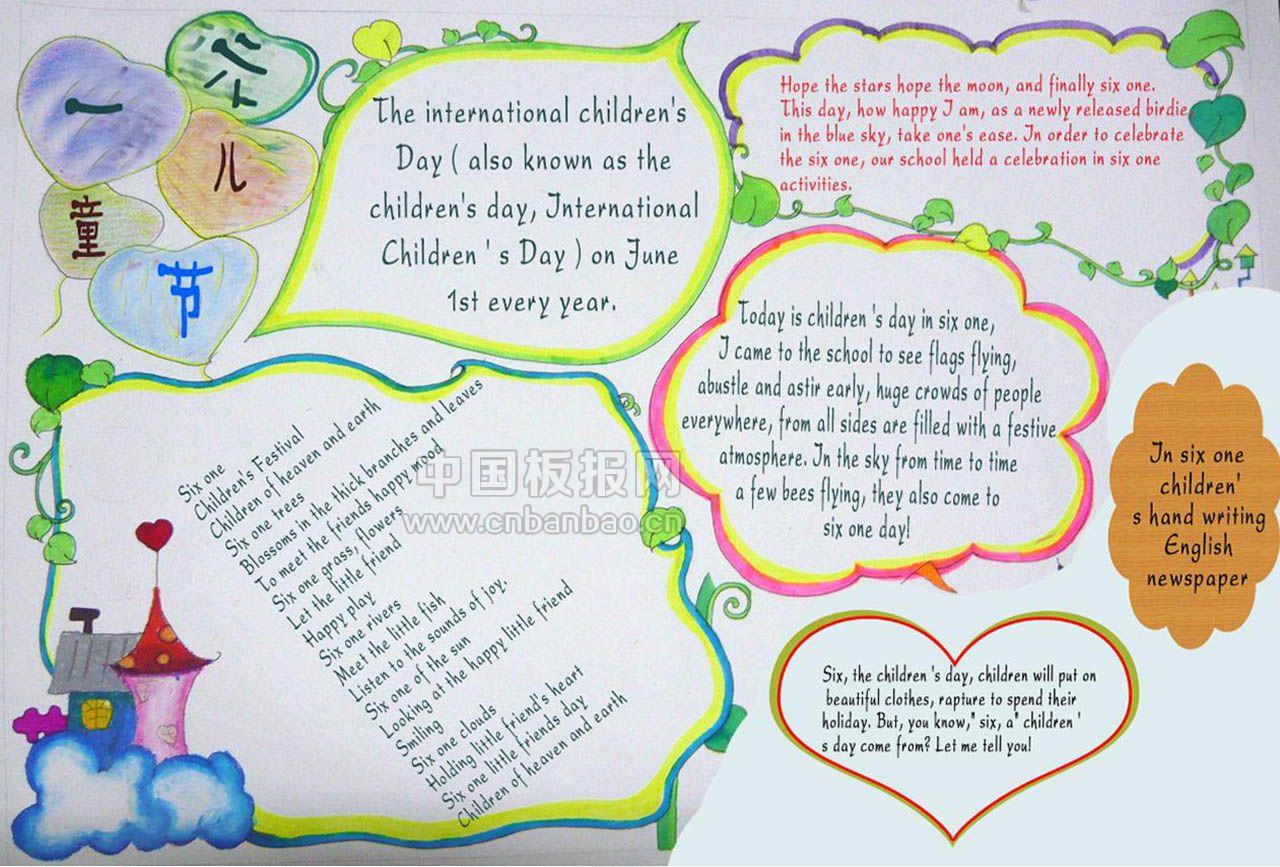 六
一
儿
童
节
The international children's
Day ( also known as the
children's day, International
Children ' s Day ) on June
1st every year.
Hope the stars hope the moon, and finally six one.
This day, how happy I am, as a newly released birdie
in the blue sky, take one's ease. In order to celebrate
the six one, our school held a celebration in six one
activities.
Today is children 's day in six one,
I came to the school to see flags flying,
abustle and astir early, huge crowds of people
everywhere, from all sides are filled with a festive
atmosphere. In the sky from time to time
a few bees flying, they also come to
six one day!
In six one
children'
s hand writing
English
newspaper
Six one
Children's Festival
Children of heaven and earth
Six one trees
Blossoms in the thick branches and leaves
To meet the friends happy mood
Six one grass, flowers
Let the little friend
Happy play
Six one rivers
Meet the little fish
Listen to the sounds of joy.
Six one of the sun
Looking at the happy little friend
Smiling
Six one clouds
Holding little friend's heart
Six one little friends day
Children of heaven and earth
Six, the children 's day, children will put on
beautiful clothes, rapture to spend their
holiday. But, you know," six, a" children '
s day come from? Let me tell you!
中国板报网
www.cnbanbao.cn